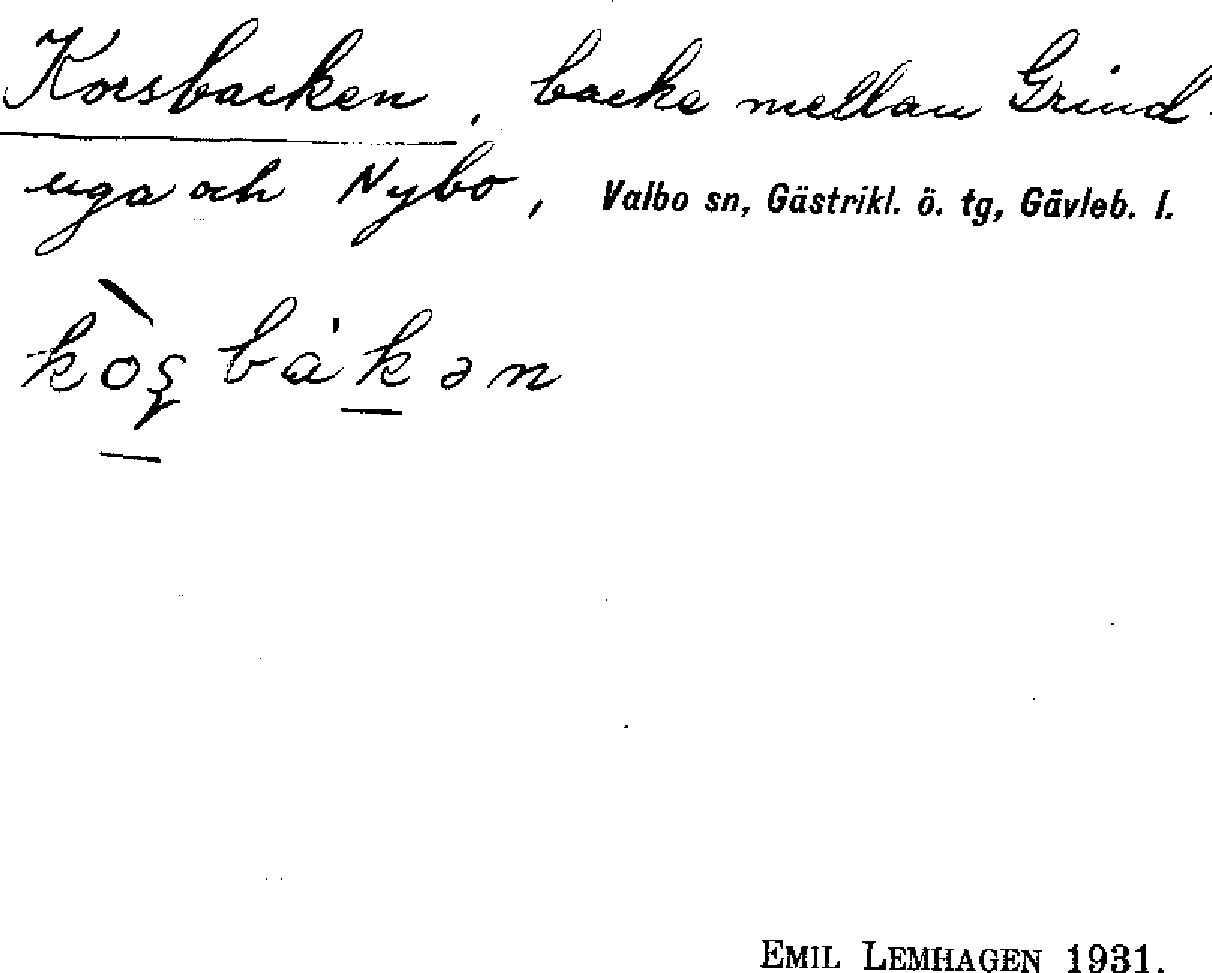 Korsbacken, backe mellan Grind-
uga och Nybo, Valbo sn, Gästrikl. ö. tg, Gävleb. l.
kòs̨ bákən
EMIL LEMHAGEN 1931.